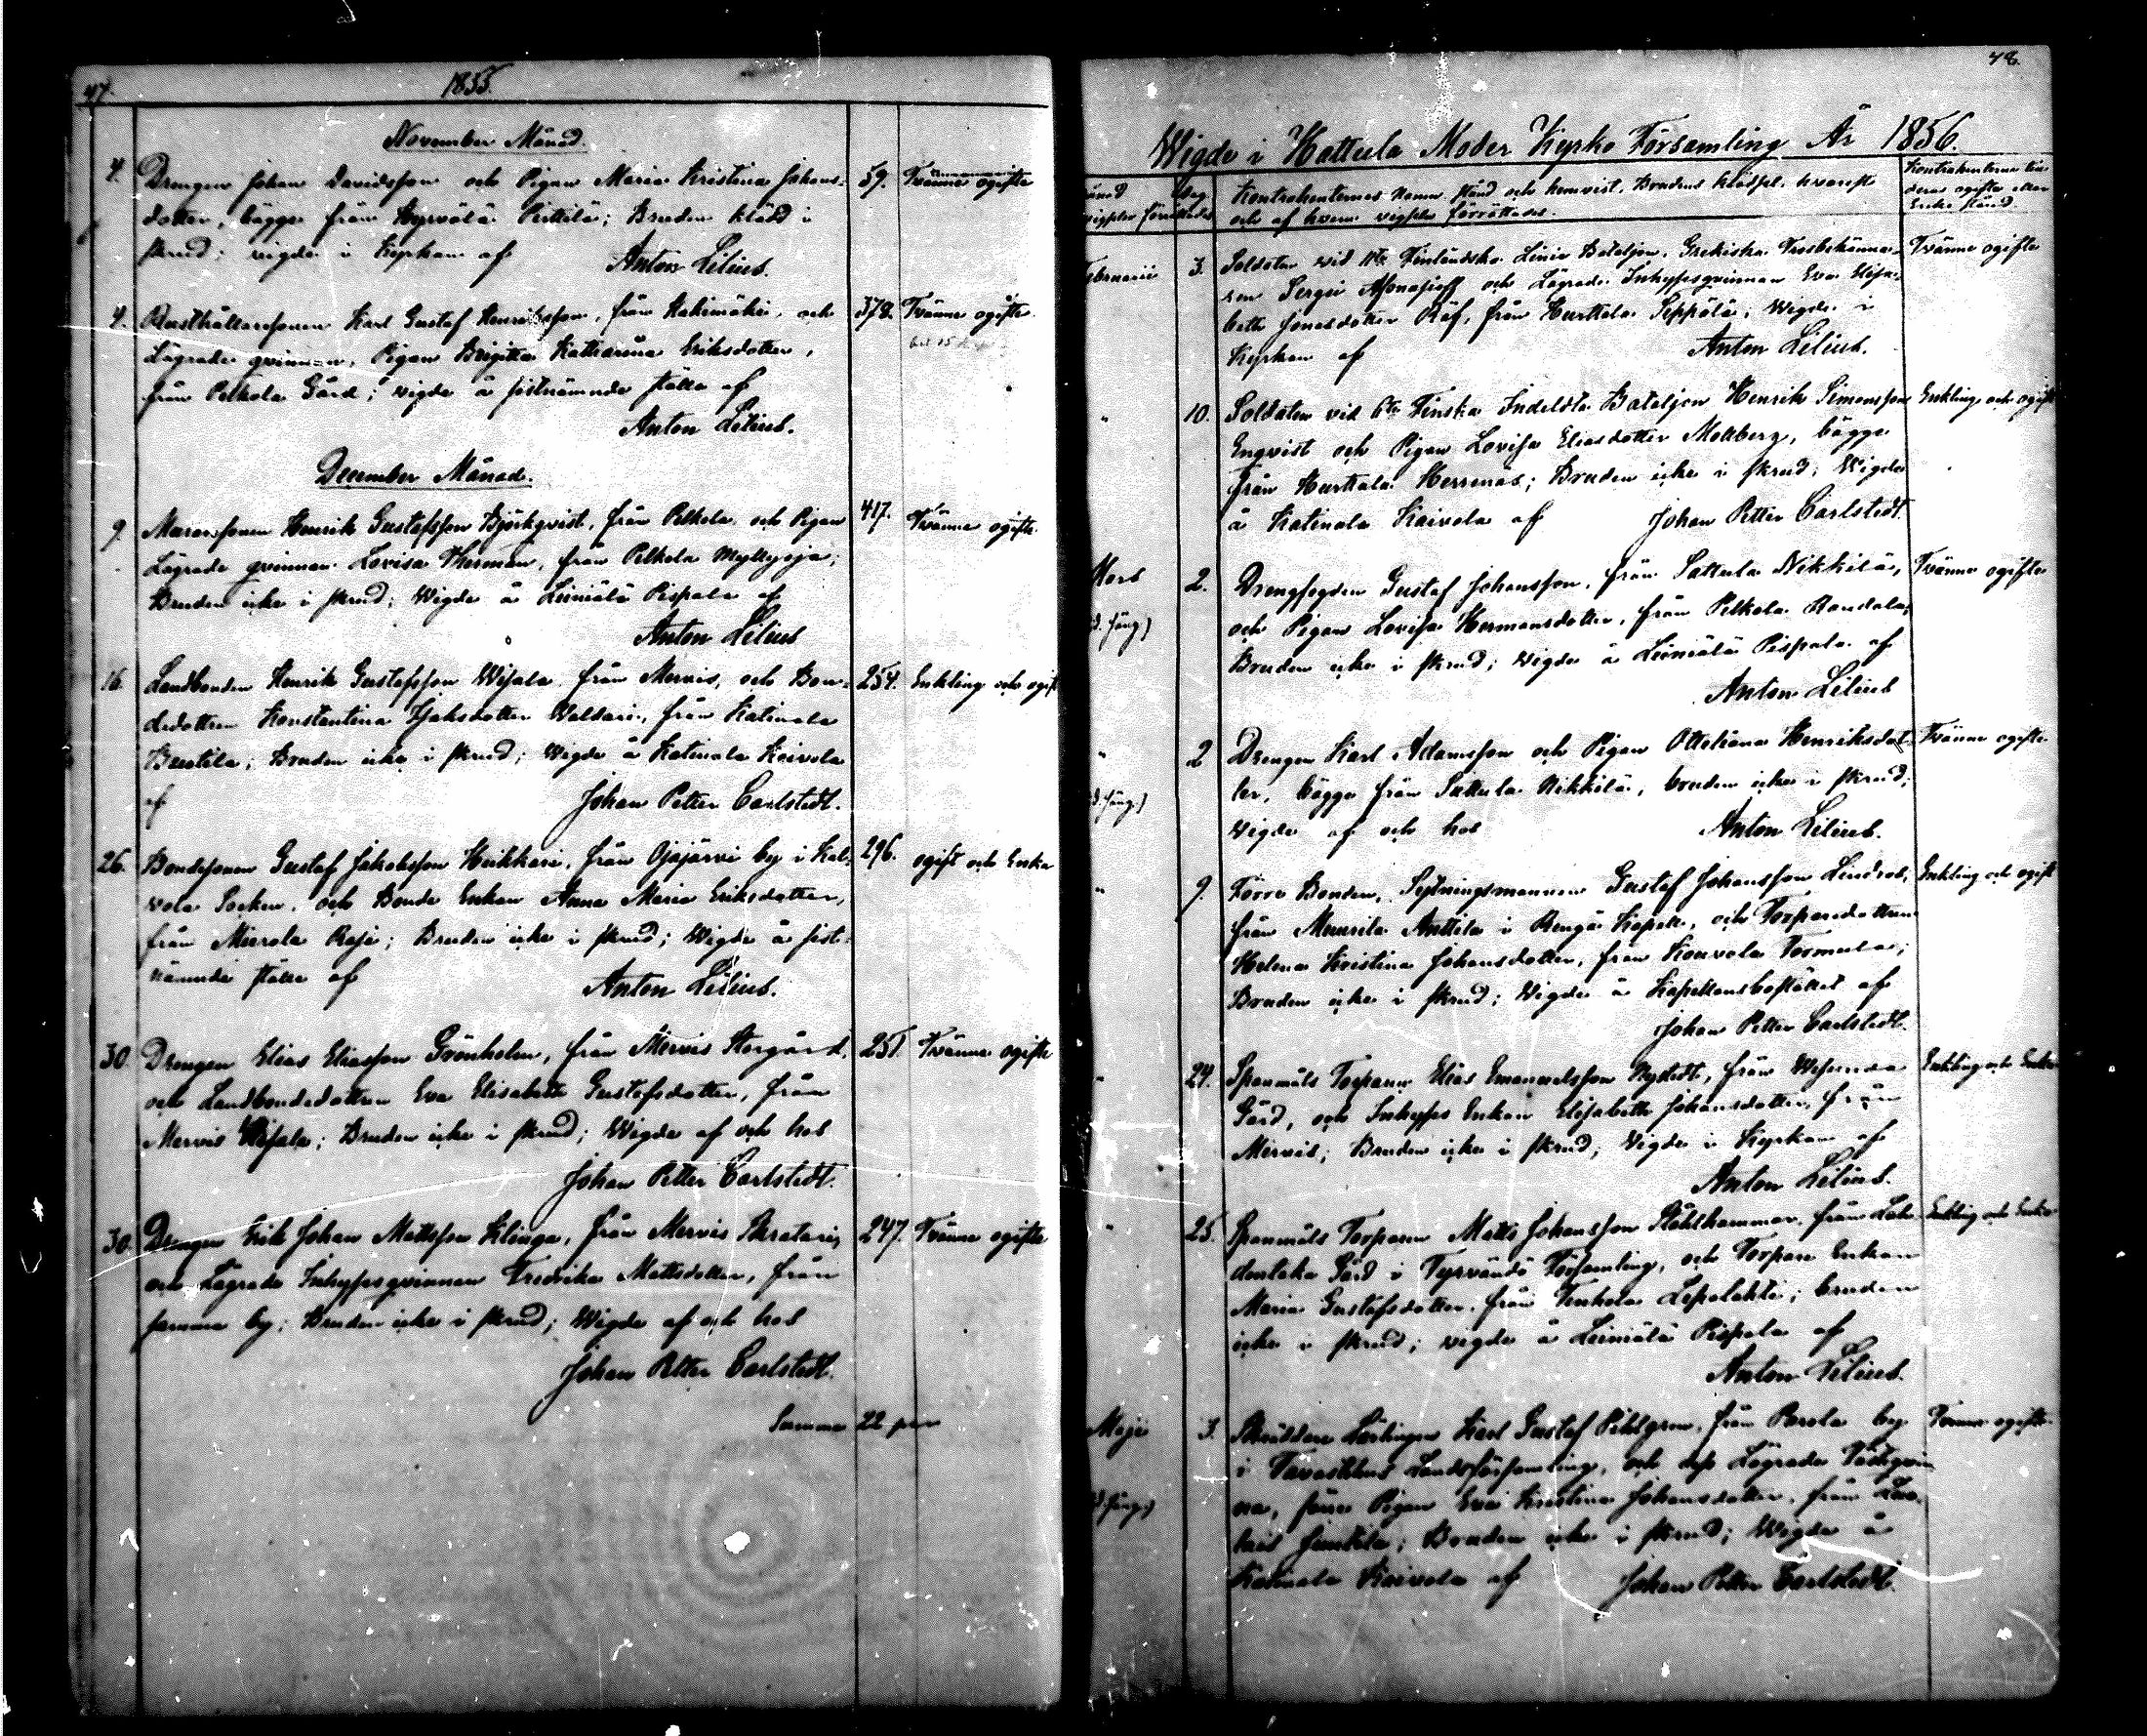 47.
1855.
November Månad.
4. Drengen Johan Davidsson och Pigan Maria Kristina Johans- 59. Tvänne ogifte
dotter, bägge från Hyrvälä Perttilä; Bruden klädd i
skrud; vigde i Kyrkan af Anton Lilius.
4. Rusthållaresonen Karl Gustaf Henriksson, från Hakimäki, och 378. Tvänne ogifte.
Lägrade qvinnan, Pigan Brigitta Katharina Eriksdotter,
från Pelkola Gård; vigde å sistnämnde ställe af
Anton Lilius.
December Månad.
9. Muraresonen Henrik Gustafsson Björkqvist, från Pelkola och Pigan 417. Tvänne ogifte.
Lägrade qvinnan Lovisa Therman, från Pelkola Myllyoja;
Bruden icke i skrud; Wigde å Leiniälä Pispala af
Anton Lilius
16. Landbonden Henrik Gustafsson Wesala från Mervis, och Bon- 254. Enkling och ogift
dedottren Konstantina Isaksdotter Waldari, från Katinala
Bustila; Bruden icke i skrud; Wigde å Katinala Kaivola
af Johan Petter Carlstedt.
26. Bondesonen Gustaf Jakobsson Heikkari, från Ojajärvi by i Kal- 296. ogift och Enka
vola Socken, och Bonde Enkan Anna Maria Eriksdotter,
från Mierola Raja; Bruden icke i skrud; Wigde å sist-
nämnde ställe af Anton Lilius.
30. Drengen Elias Eliasson Grönholm, från Mervis Storgård, 251. Tvänne ogifte
och Landbondedottren Eva Elisabeth Gustafsdotter, från
Mervis Wesala; Bruden icke i skrud; Wigde af och hos
Johan Petter Carlstedt.
30. Drengen Erik Johan Mattsson Klinga, från Mervis Skratari, 247. Tvänne ogifte
och Lägrade Inhysesqvinnan Fredrika Mattsdotter, från
samma by; Bruden icke i skrud; Wigde af och hos
Johan Petter Carlstedt.
Summa 22 par
48.
Wigde i Hattula Moder Kyrko Församling År 1856.
Kontrahenternes namn, stånd och hemvist, Brudens klädsel, hvarest
och af hvem vigseln förrättades.
Kontrahenternes
deras ogifta eller
Enke stånd.
Februarii 3. Soldaten vid Finländska Linie Bataljon, Grekiska Trosbekänna- Tvänne ogifte
ren Sergei Afonasieff och Lägrade Inhysesqvinnan Eva Elisa-
beth Jonasdotter Räf, från Hurttala Seppälä; Wigde i
Kyrkan af Anton Lilius.
" 10. Soldaten vid 6te Finska Indelta Bataljon Henrik Simonsson Enkling och ogift
Engvist och Pigan Lovisa Eliasdotter Mollberg, bägge
från Hurttala Herrenäs; Bruden icke i skrud; Wigde
å Katinala Kaivola af Johan Petter Carlstedt.
Mars 2. Drengfogden Gustaf Johansson, från Sattula Nikkilä, Tvänne ogifte
och Pigan Lovisa Hermansdotter, från Pelkola Randala;
Bruden icke i skrud; Wigde å Leiniälä Pispala af
Anton Lilius
" 2 Drengen Karl Adamsson och Pigan Ottiliana Henriksdot- Tvänne ogifte
ter, bägge från Sattula Nikkilä, bruden icke i skrud;
Wigde af och hos Anton Lilius.
" 9. Förre Bonden, Sytningsmannen Gustaf Johansson Lindroos, Enkling och ogift
från Muurila Anttila i Rengo Kapell, och Torparedottren
Helena Kristina Johansdotter, från Kouvola Tormula;
Bruden icke i skrud; Wigde å Kapellansbostället af
Johan Petter Carlstedt.
" 24. Spanmåls Torparen Elias Emanuelsson Nystedt, från Wesunda Enkling och Enka
Gård, och Inhyses Enkan Elisabeth Johansdotter, från
Mervis; Bruden icke i skrud; Wigde i Kyrkan af
Anton Lilius.
" 25. Spanmåls Torparen Matts Johansson Stålhammar, från Enkling och Enka
Gård i Tyrvändö Församling, och Torpare Enkan
Maria Gustafsdotter, från Ihalempi Lepolahti; bruden
icke i skrud; vigde å Leiniälä Pispala af
Anton Lilius.
Maji 3. Skräddare Lärlingen Karl Gustaf Pihlgren, från Parola by Tvänne ogifte
i Tavastehus Landsförsamling, och Lägrade
Pigan Eva Kristina Johansdotter, från
Bruden icke i skrud; Wigde å
Katinala Kaivola af Johan Petter Carlstedt.